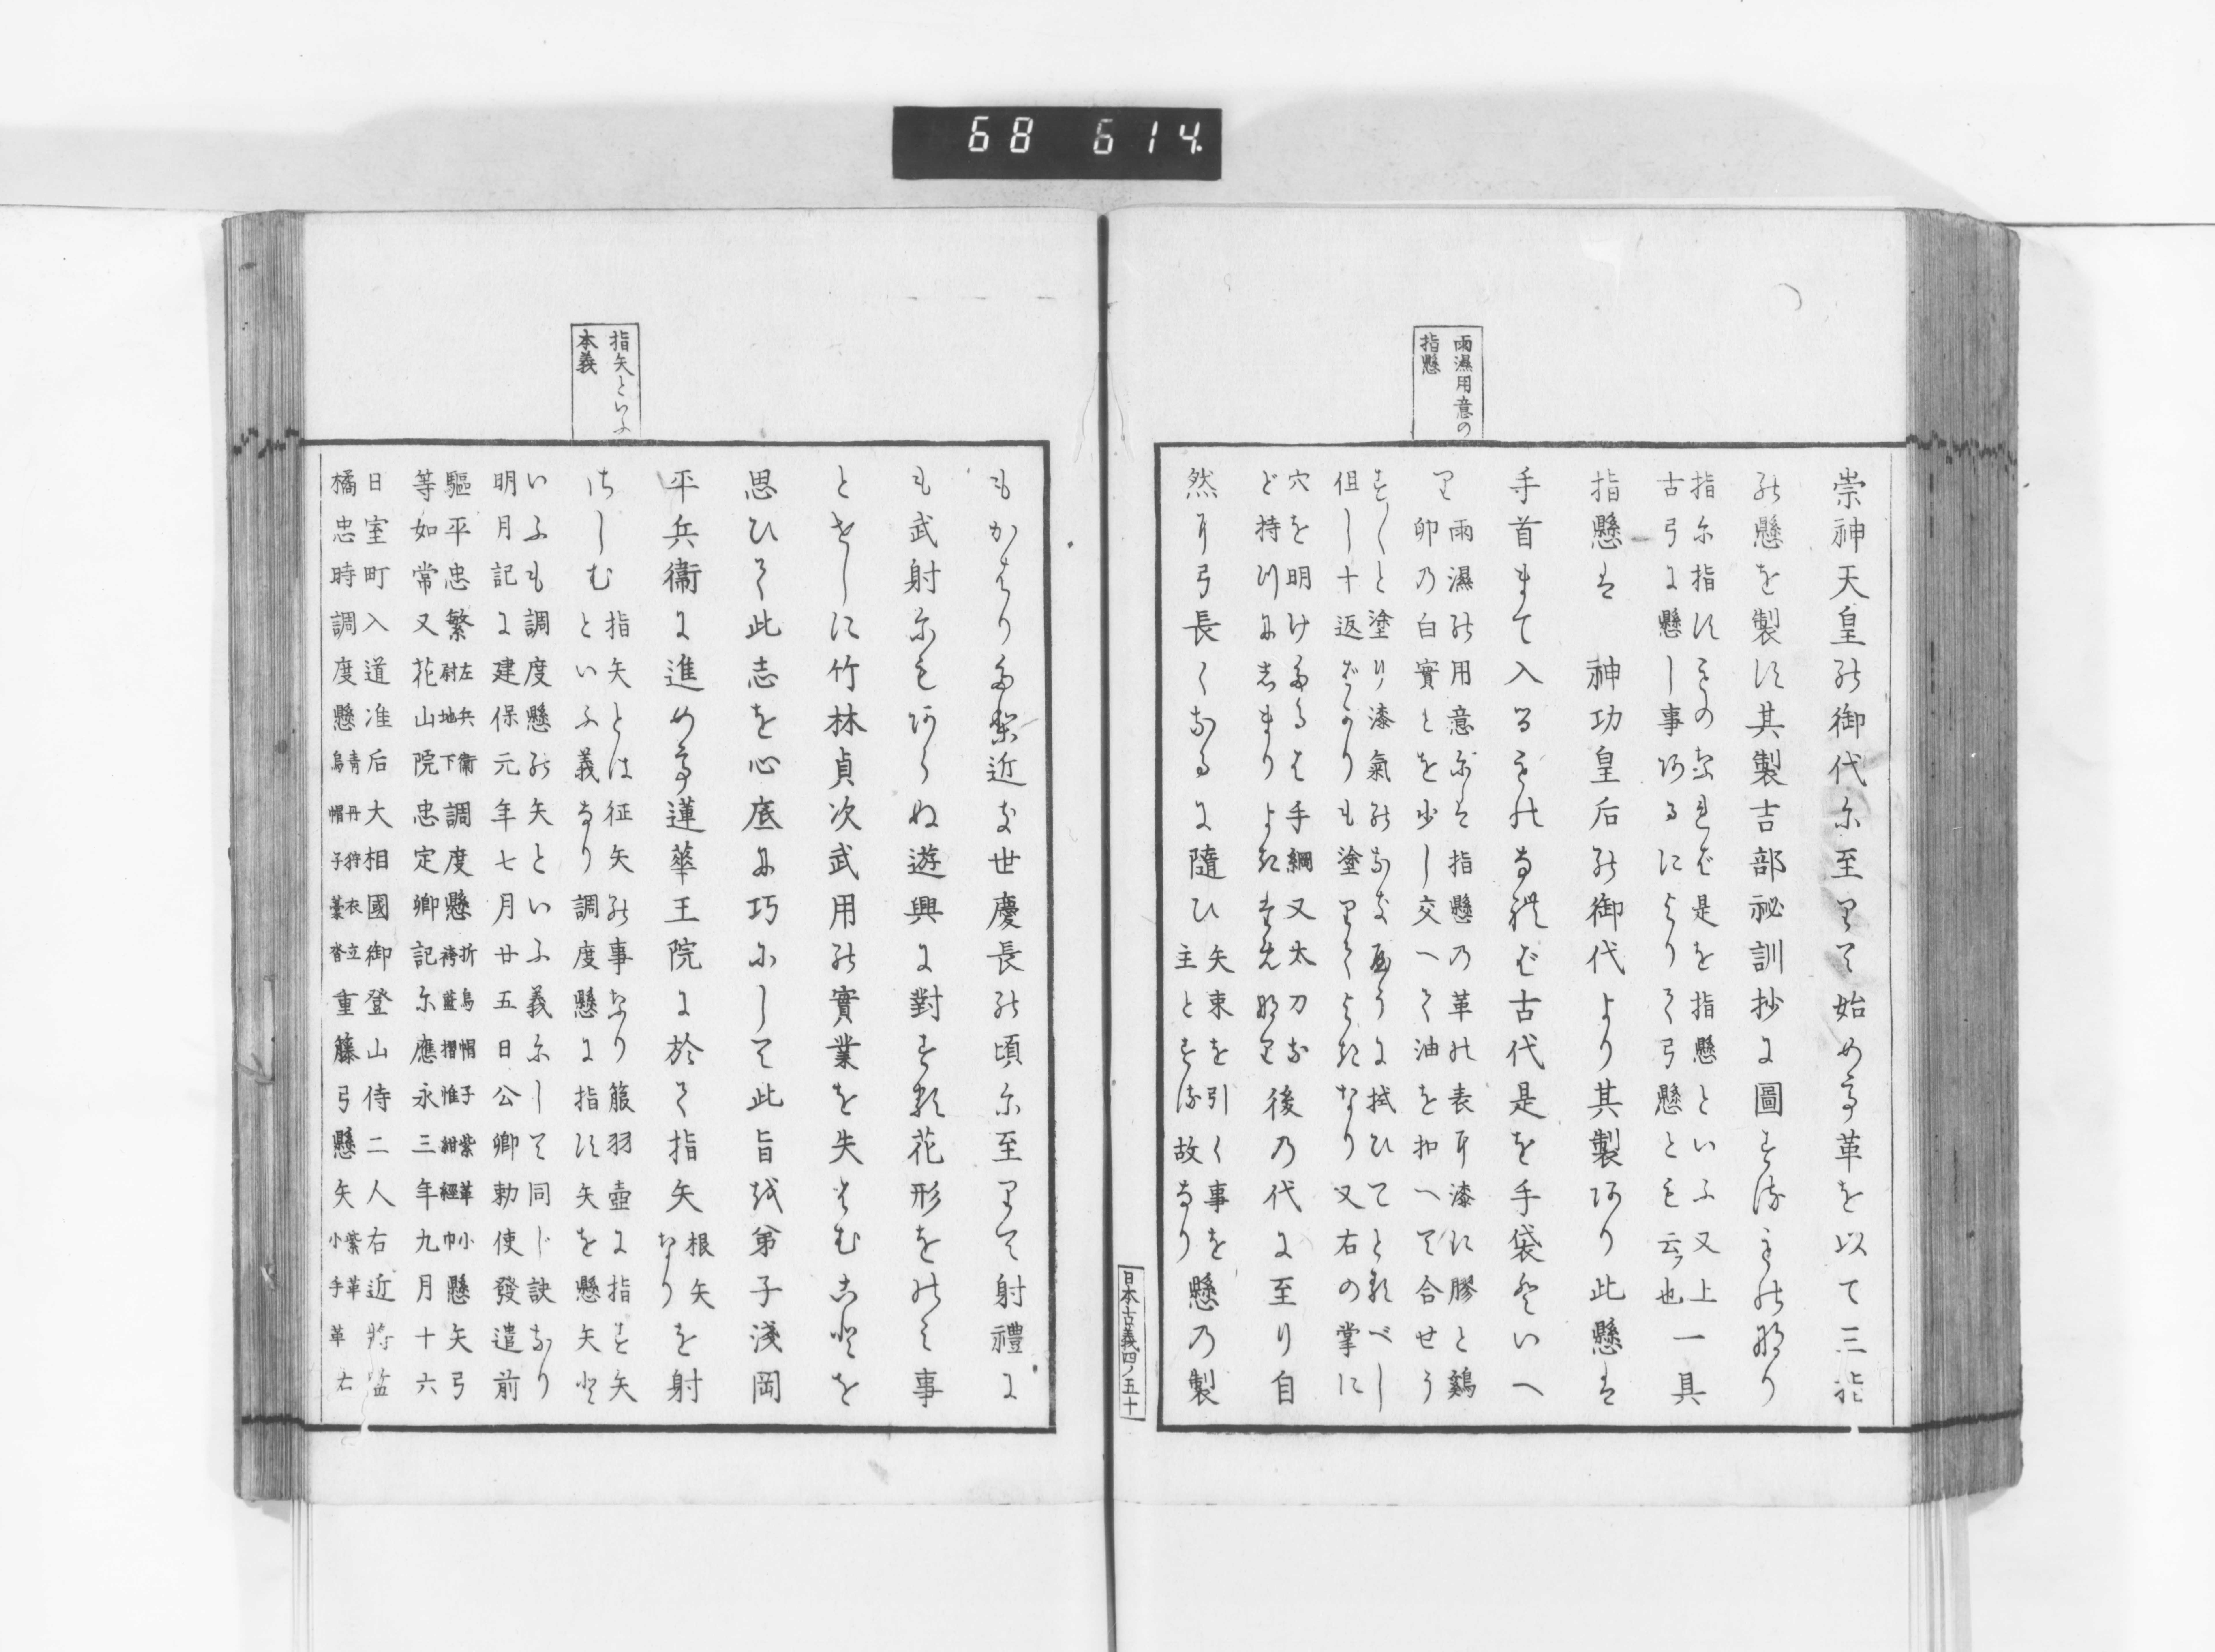 雨濕用意の
指懸
崇神天皇の御代に至りて始めて革を以て三指
の懸を製す其製吉部祕訓抄に圖するものなり
指に指すものなれば是を指懸といふ又上
古弓に懸し事あるによりて弓懸とも云フ也 一具
指懸は 神功皇后の御代より其製あり此懸は
手首まて入るものなれば古代是を手袋といへ
り 雨濕の用意には指懸の革の表に漆に膠と鷄
卵の白實とを少し交へて油を加へて合せう
すくと塗り漆氣のなきやうに拭ひてとるべし
但し十返ばかりも塗りてよきなり又右の掌に
穴を明けたるは手綱又太刀な
ど持つにしまりよきためなり 後の代に至り自
然に弓長くなるに隨ひ 矢束を引く事を
主とする故なり 懸の製
日本古義四ノ五十
指矢といふ
本義
もかはりたり近き世慶長の頃に至りて射禮に
も武射にもあらぬ遊興に對する花形をのみ事
とせしに竹林貞次武用の實業を失はむことを
思ひて此志を心底に巧にして此旨を弟子淺岡
平兵衞に進めて蓮華王院に於て指矢 根矢
なり を射
はしむ 指矢とは征矢の事なり箙羽壺に指す矢
といふ義なり調度懸に指す矢を懸矢と
いふも調度懸の矢といふ義にして同じ訣なり
明月記に建保元年七月廿五日公卿勅使發遣前
驅平忠繁 左兵衞
尉地下 調度懸 折烏帽子紫革小
袴藍摺帷紺經巾 懸矢弓
等如常又花山院忠定卿記に應永三年九月十六
日室町入道准后大相國御登山侍二人右近將監
橘忠時調度懸 青丹狩衣立
烏帽子藁沓 重籐弓懸矢 紫革
小手 革右